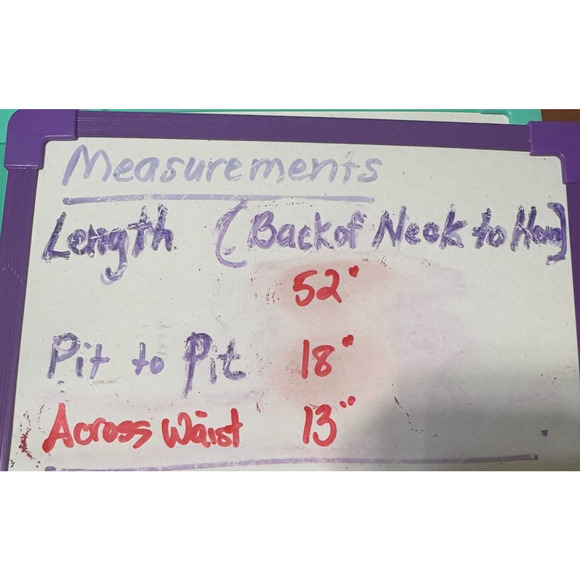 Measurements
Length (Back of Neck to Hem)
52"
Pit to Pit 18"
Across Waist 13"